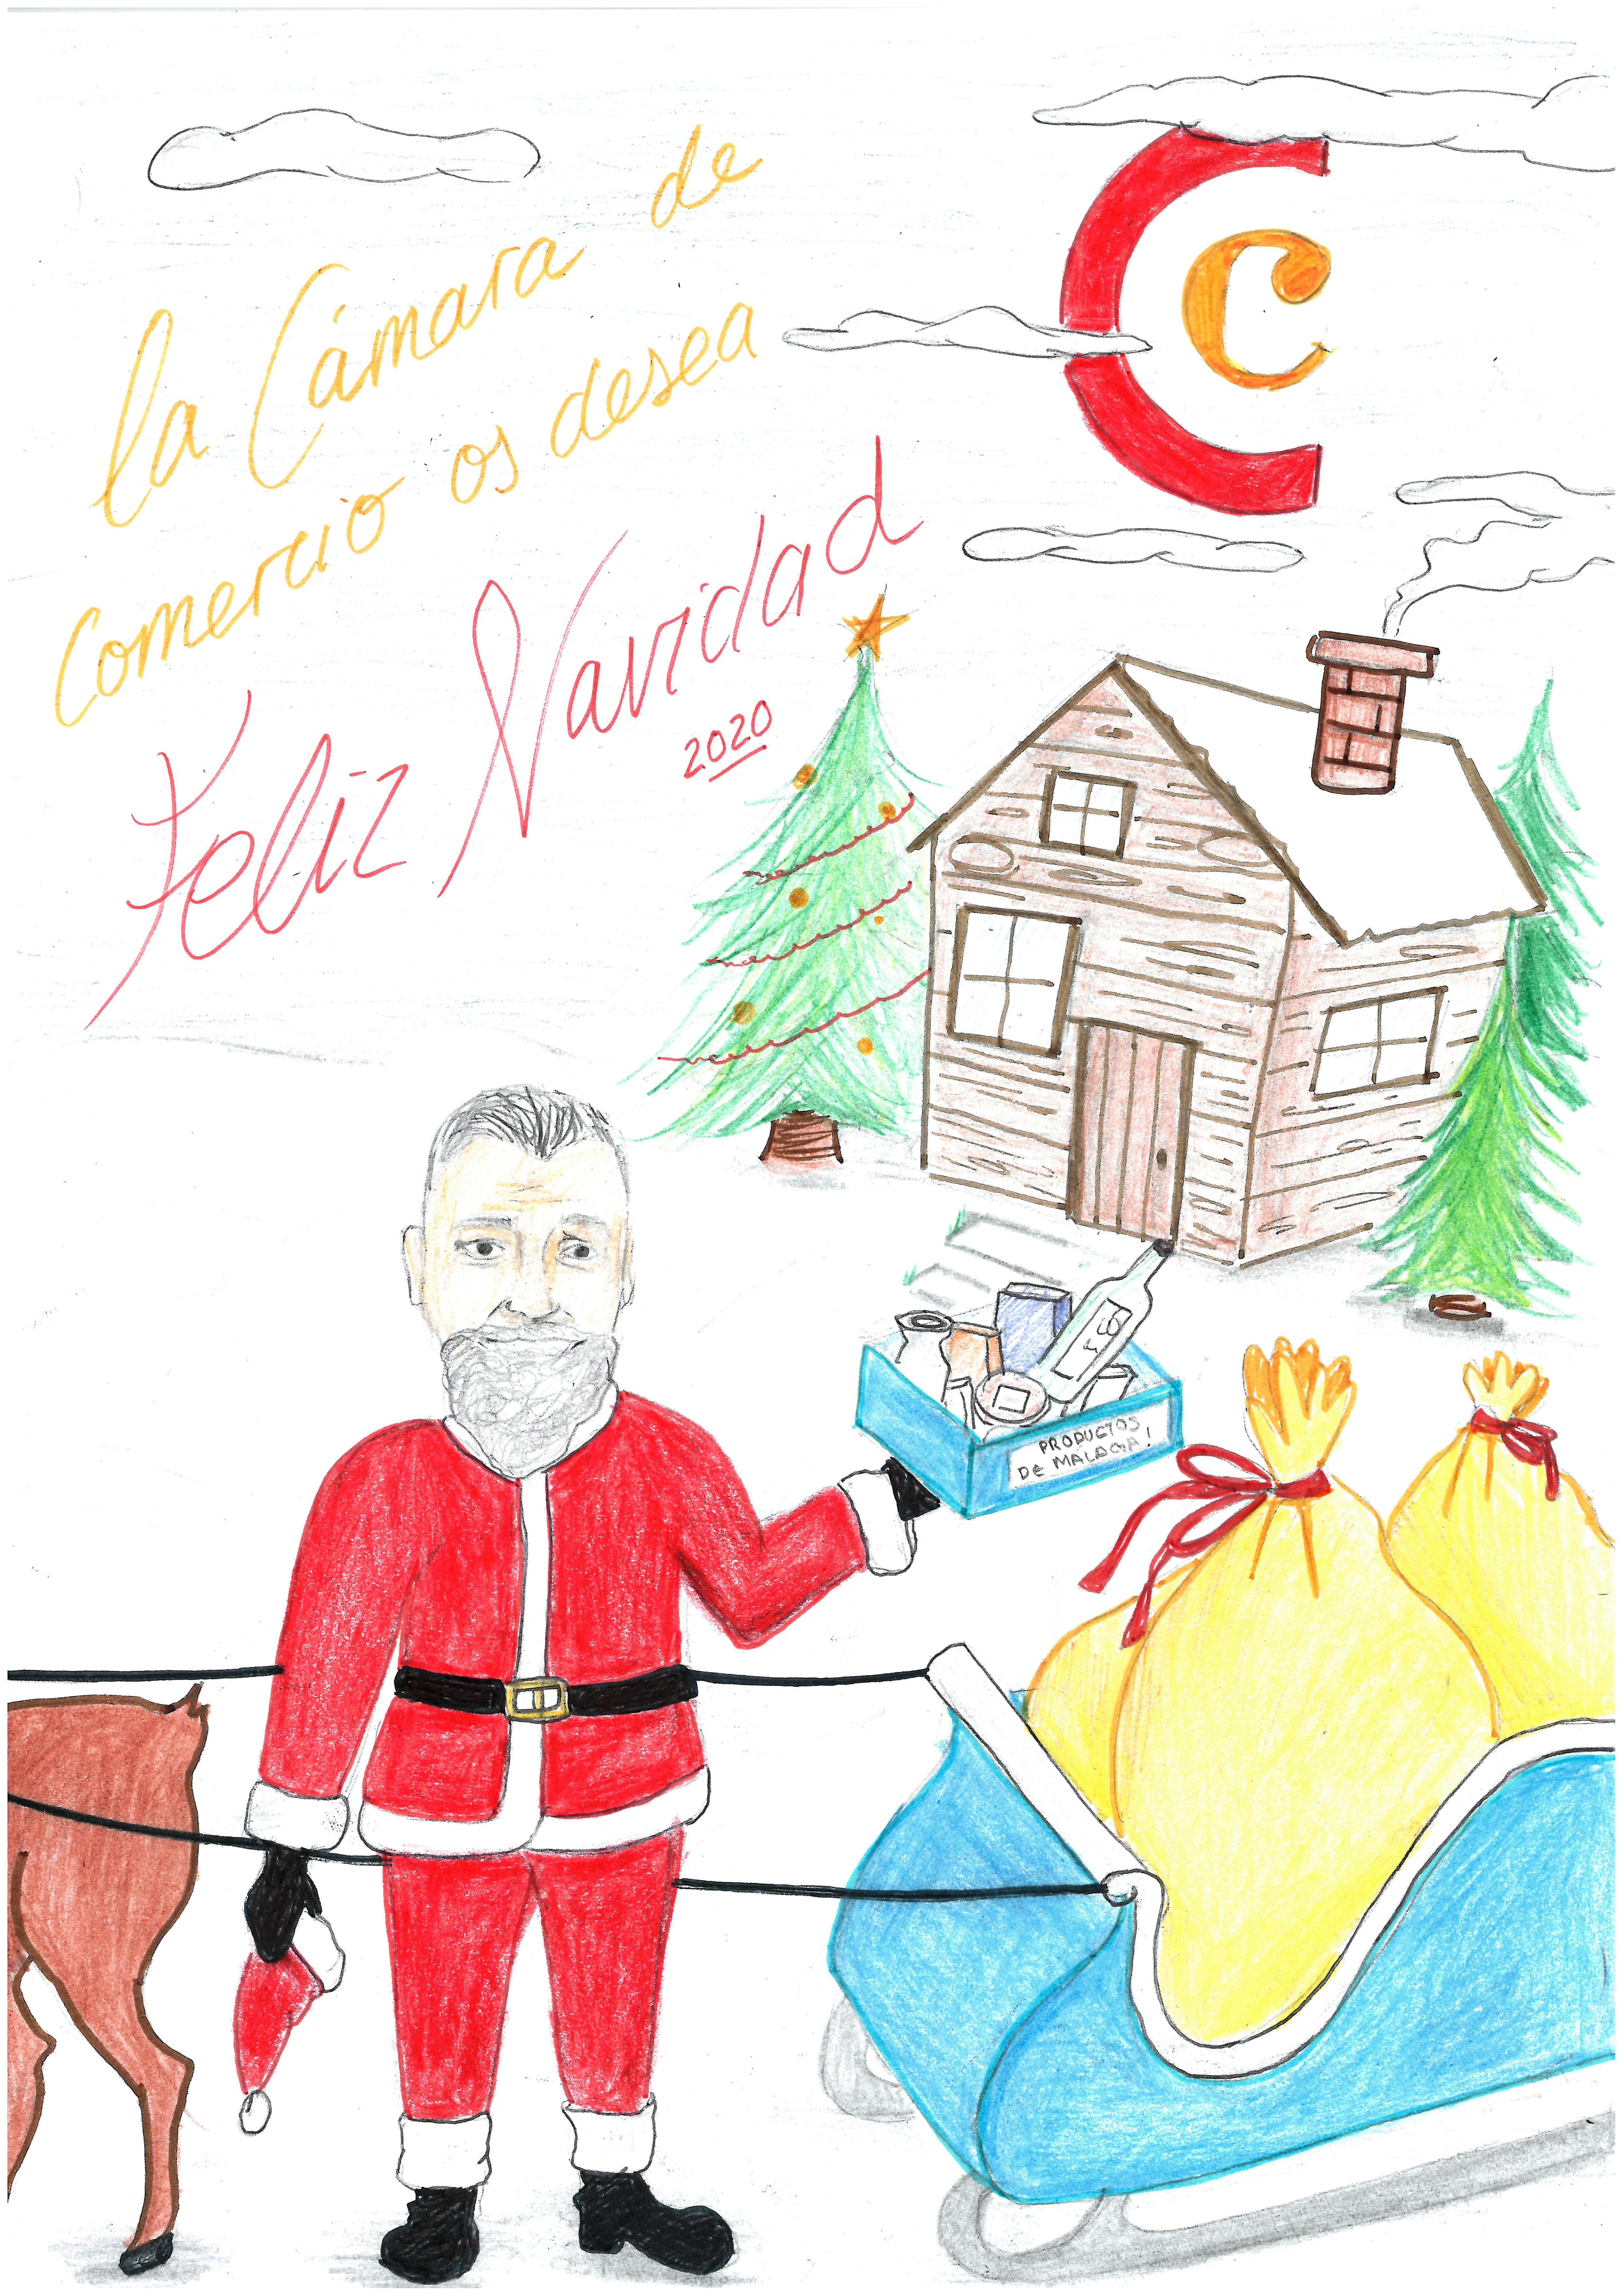 la Cámara de
Comercio os desea
Feliz Navidad
2020
C
C
PRODUCTOS
De MALAGA!